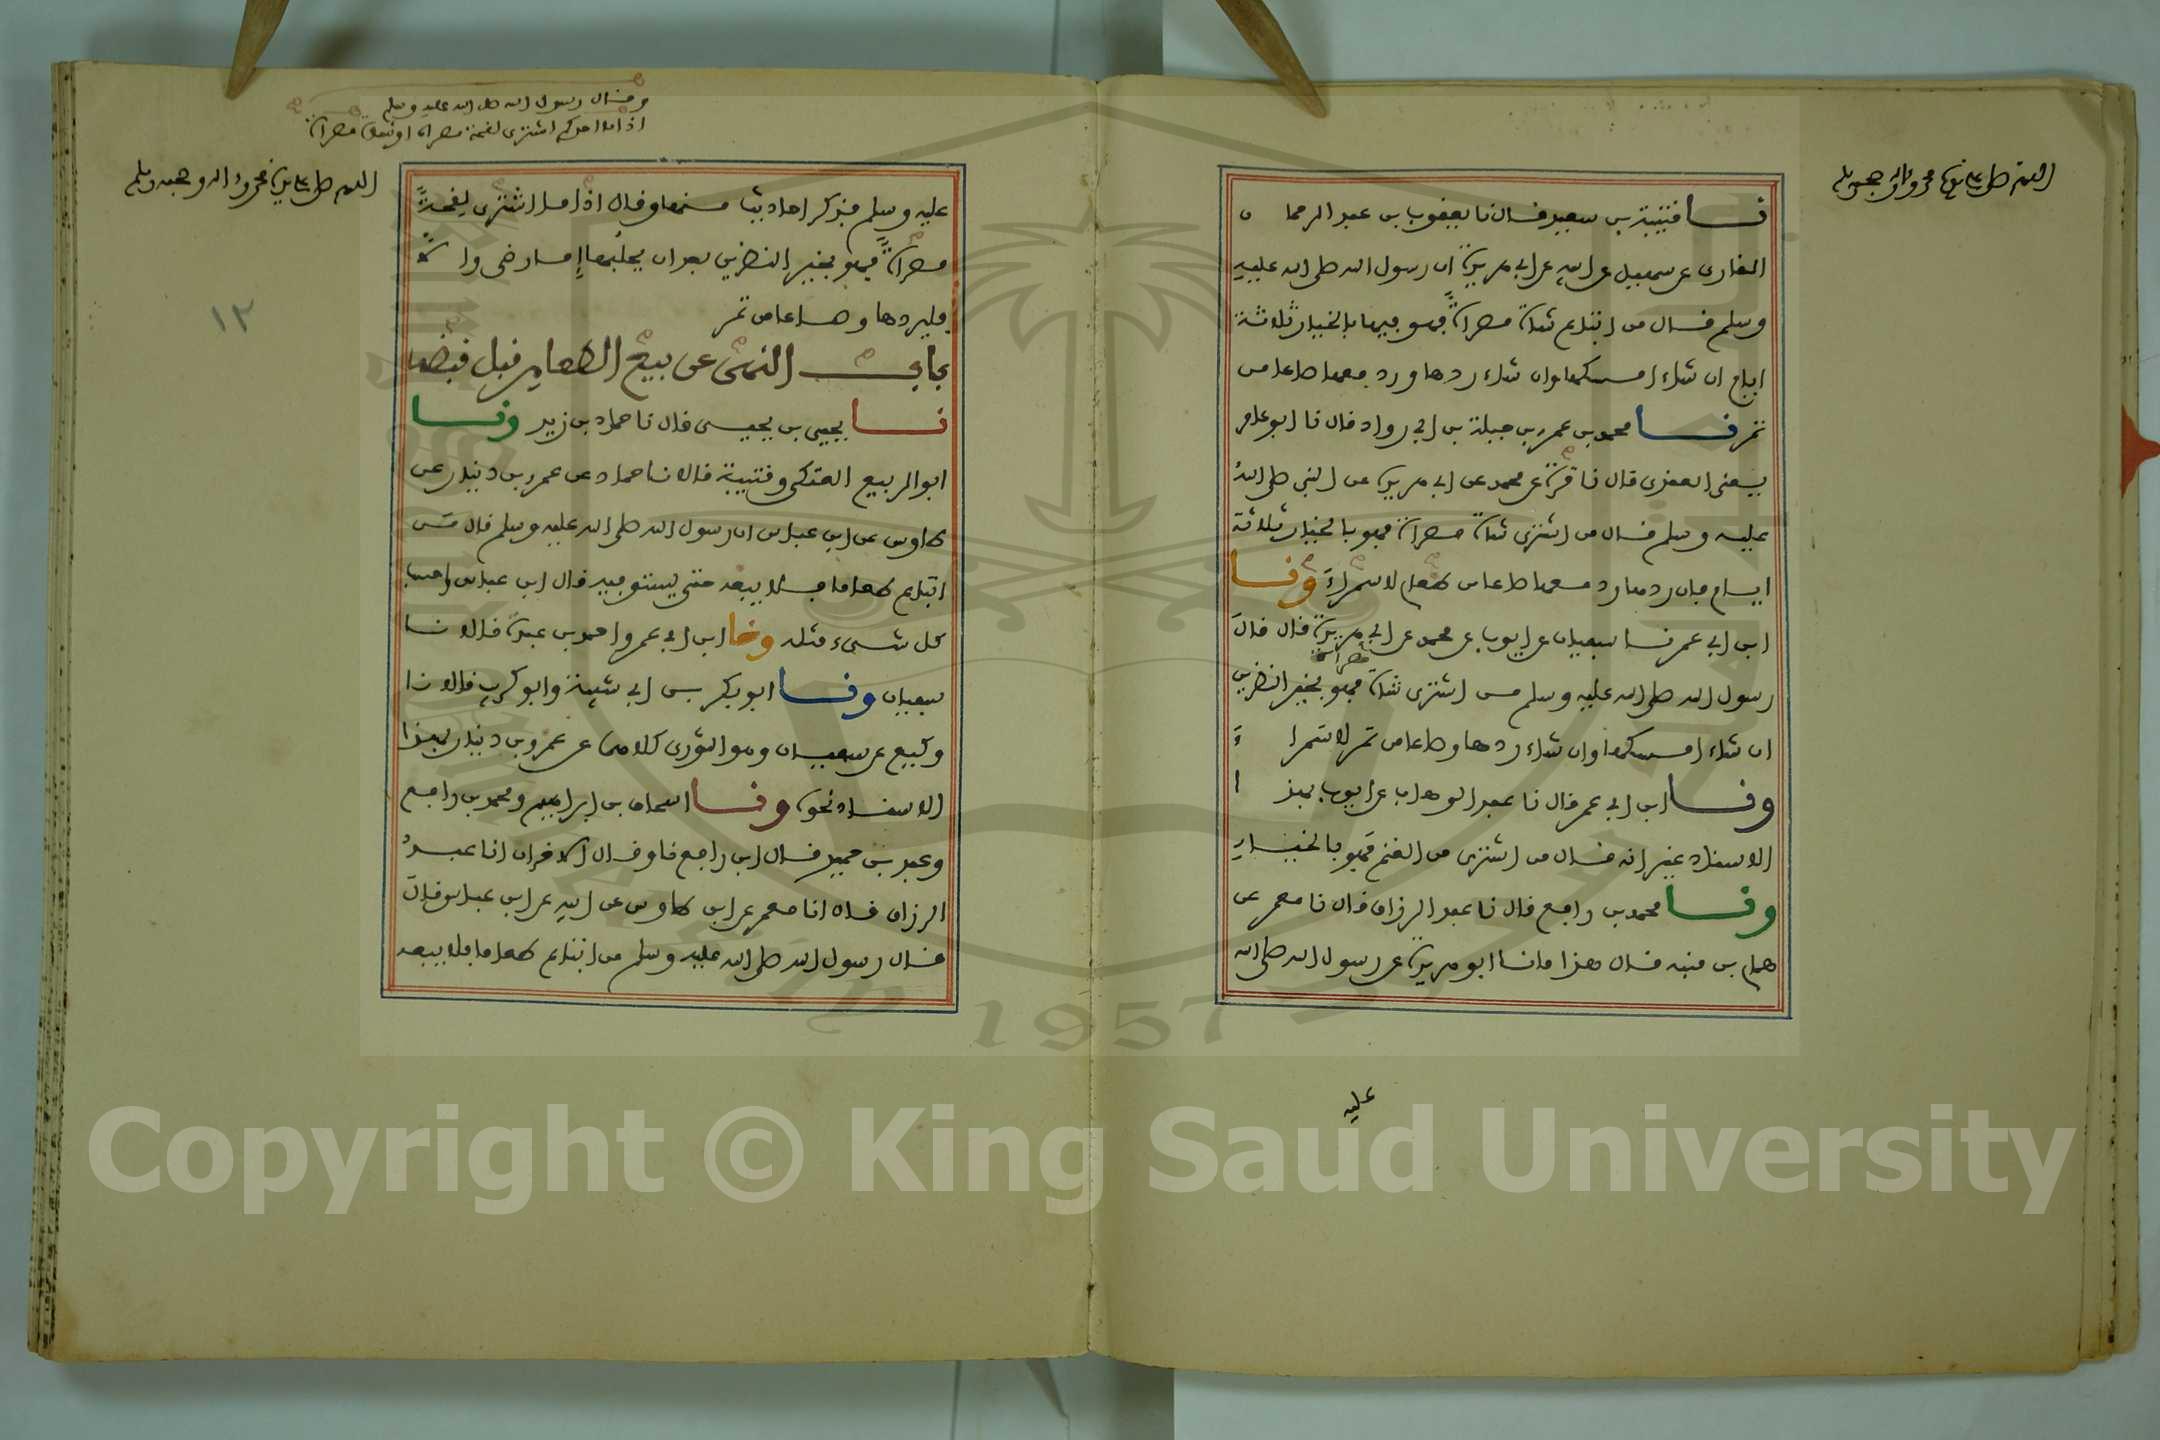 اللهم صل على سيدنا محمد وءاله وصحبه وسلم
نا قتيبة بن سعيد قال نا يعقوب بن عبد الرحمان
القاري عن سهيل عن ابيه عن ابي هريرة ان رسول الله صلى الله عليه
وسلم قال من ابتاع شاة مصراة فهو فيها بالخيار ثلاثة
ايام ان شاء امسكها وان شاء ردها ورد معها صاعا من
تمر نا محمد بن عمرو بن جبلة بن ابي رواد قال نا ابو عامر
يعني العقدي قال نا قرة عن محمد عن ابي هريرة عن النبي صلى الله
عليه وسلم قال من اشترى شاة مصراة فهو بالخيار ثلاثة
ايام فان ردها رد معها صاعا من طعام لا سمراء ونا
ابن ابي عمر نا سفيان عن ايوب عن محمد عن ابي هريرة قال قال
مصراة
رسول الله صلى الله عليه وسلم من اشترى شاة فهو بخير النظرين
ان شاء امسكها وان شاء ردها وصاعا من تمر لا سمراء
ونا ابن ابي عمر قال نا عبد الوهاب عن ايوب بهذا
الاسناد غير انه قال من اشترى من الغنم فهو بالخيار
ونا محمد بن رافع قال نا عبد الرزاق قال نا معمر عن
همام بن منبه قال هذا ما نا ابو هريرة عن رسول الله صلى الله
عليه
وقال رسول الله صلى الله عليه وسلم
اذا ما احدكم اشترى لقحة مصراة او شاة مصراة
اللهم صل على سيدنا محمد وءاله وصحبه وسلم
١٢
عليه وسلم فذكر احاديث منها وقال اذا ما اشترى لقحة
مصراة فهو بخير النظرين بعد ان يحلبها إما رضي والا
فليردها وصاعا من تمر
باب النهي عن بيع الطعام قبل قبضه
نا يحيى بن يحيى قال نا حماد بن زيد ونا
ابو الربيع العتكي وقتيبة قالا نا حماد عن عمرو بن دينار عن
طاوس عن ابن عباس ان رسول الله صلى الله عليه وسلم قال من
ابتاع طعاما فلا يبعه حتى يستوفيه قال ابن عباس واحسب
كل شيء مثله ونا ابن ابي عمر واحمد بن عبدة قالا نا
سفيان ونا ابو بكر بن ابي شيبة وابو كريب قالا نا
وكيع عن سفيان وهو الثوري كلاهما عن عمرو بن دينار بهذا
الاسناد نحوه ونا اسحاق بن ابراهيم ومحمد بن رافع
وعبد بن حميد قال ابن رافع نا وقال الاخران انا عبد
الرزاق قال انا معمر عن ابن طاوس عن ابيه عن ابن عباس قال
قال رسول الله صلى الله عليه وسلم من ابتاع طعاما فلا يبعه
Copyright © King Saud University
1957